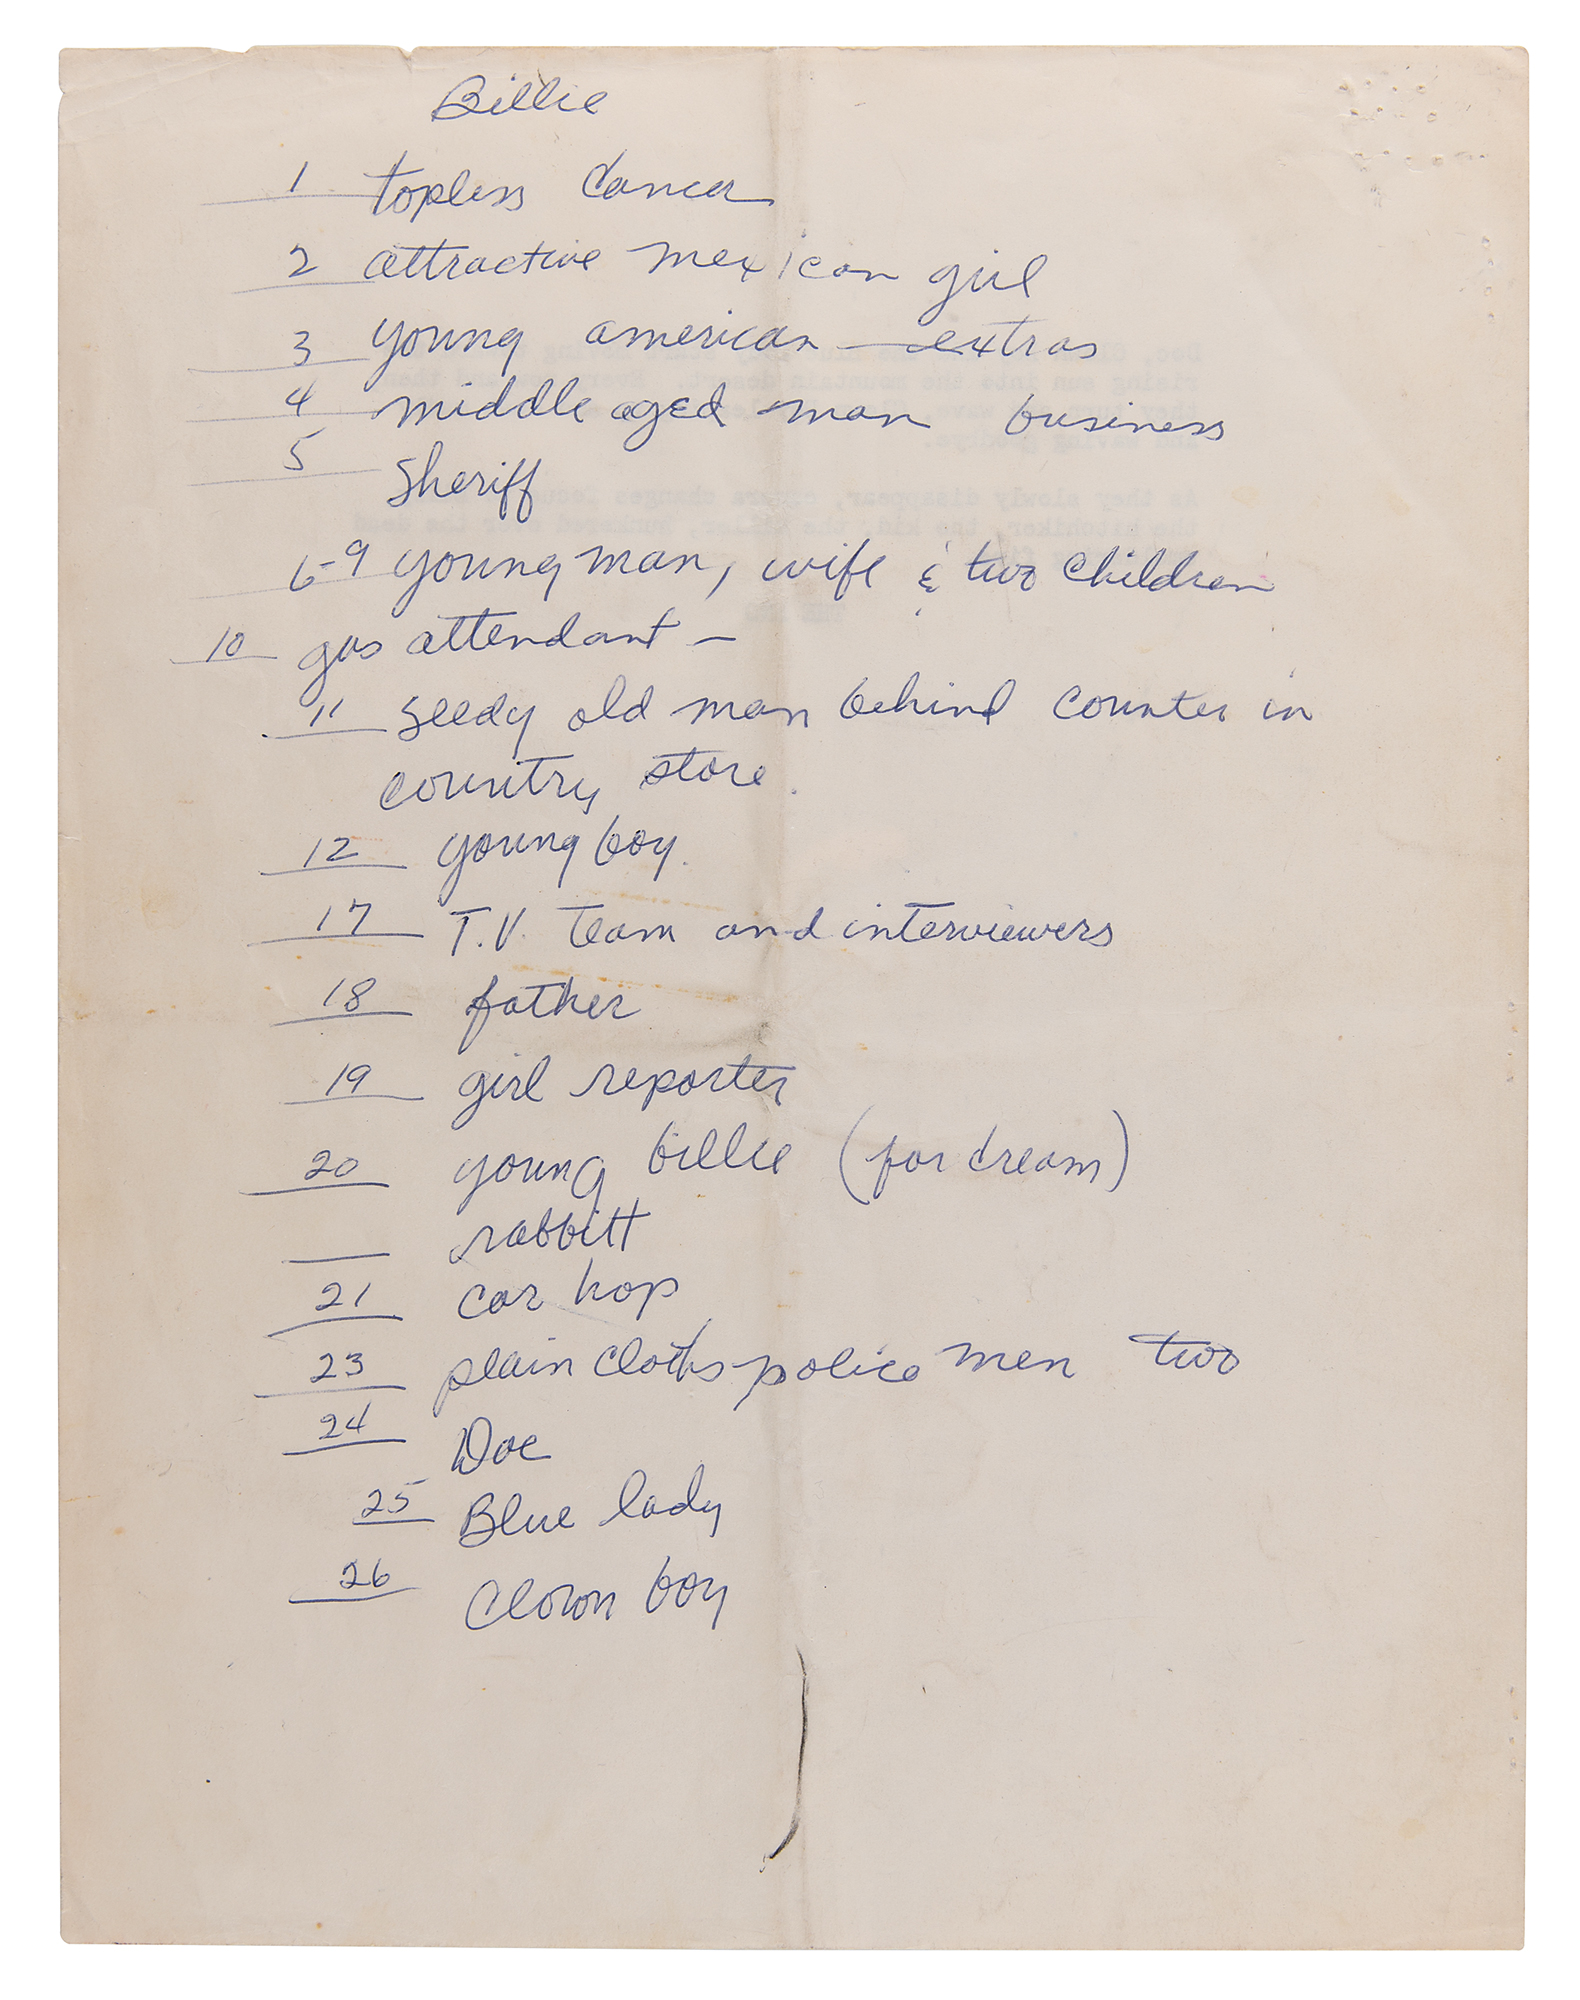 Billie
1 topless dancer
2 attractive mexican girl
3 young american extras
4 middle aged man business
5 Sheriff
6-9 young man, wife & two children
10 gas attendant -
11 seedy old man behind counter in
country store.
12 young boy.
17 T.V. team and interviewers
18 father
19 girl reporter
20 young billie (for dream)
rabbitt
21 car hop
23 plain cloths police men two
24 Doc
25 Blue lady
26 Clown boy